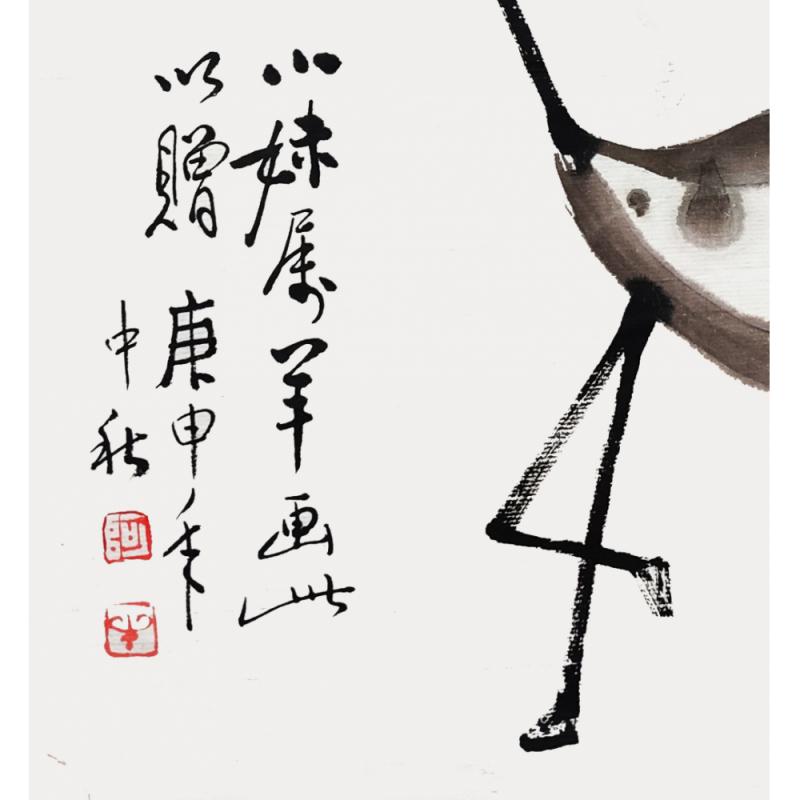 小妹属羊画此
以赠 庚申年
中秋
阿